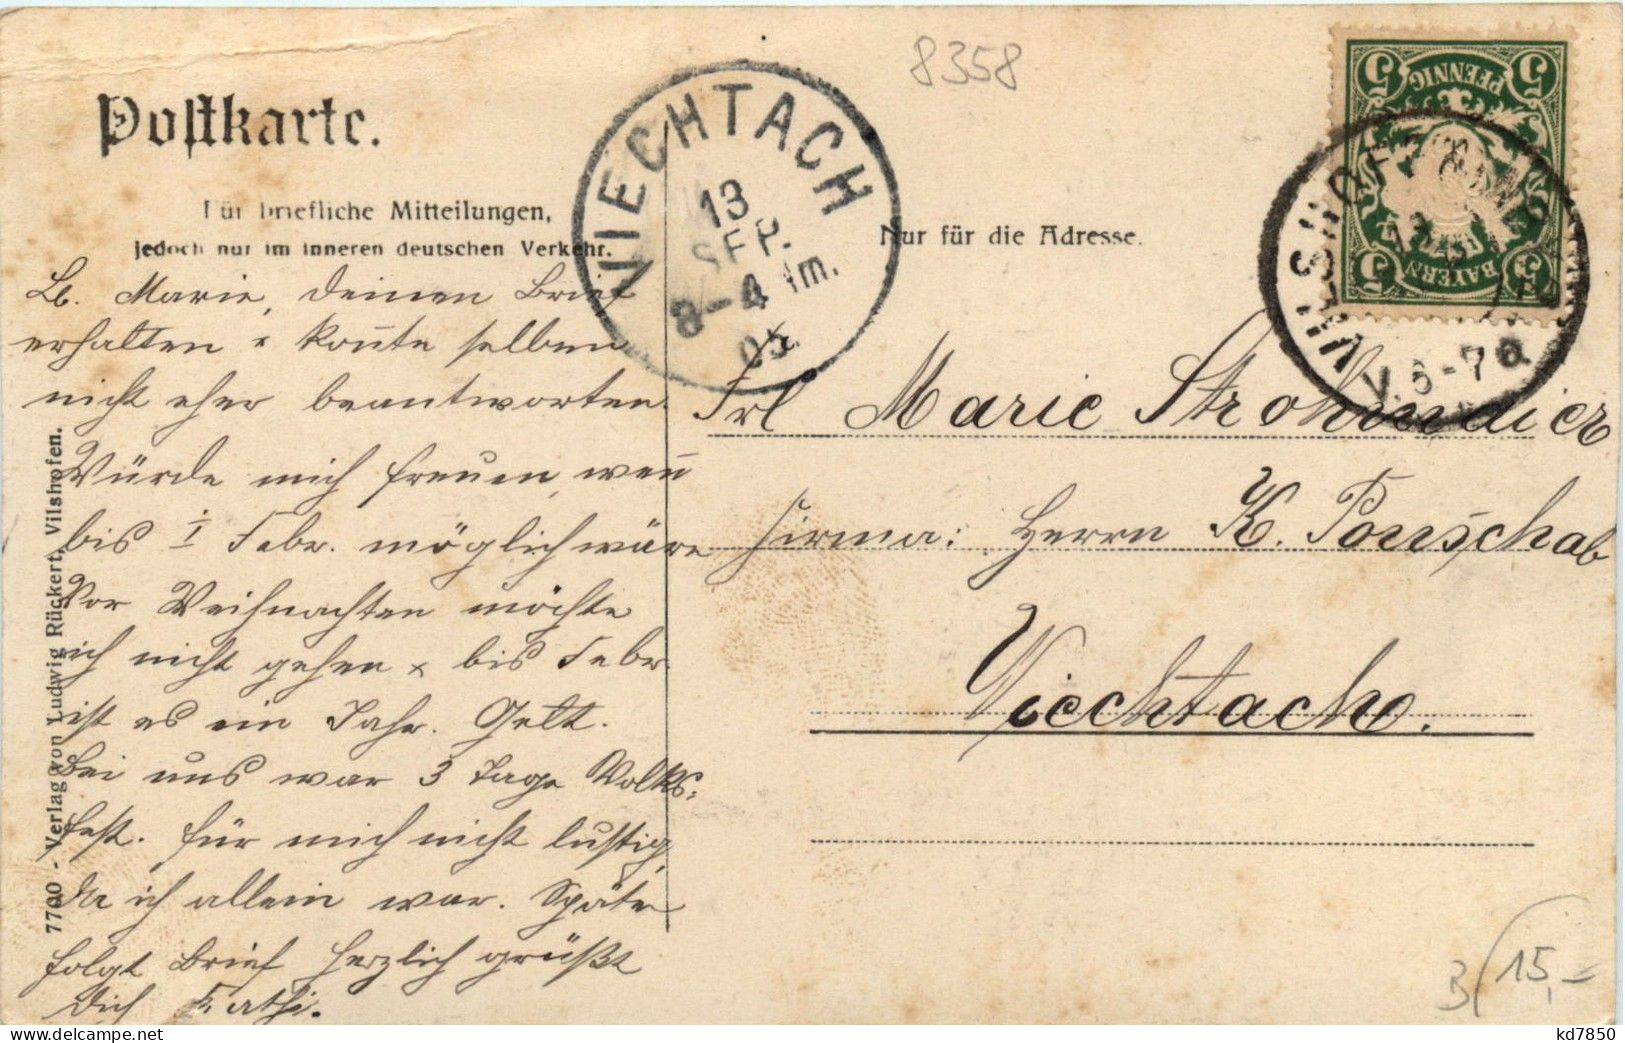 8358
Postkarte.
Für briefliche Mitteilungen,
jedoch nur im inneren deutschen Verkehr.
Nur für die Adresse.
VIECHTACH
13
SEP.
3-4 Nm.
05
5 PFENNIG 5
5 BAYERN 5
VILSHOFEN
V. 6-7
Lb. Marie, deinen Brief
erhalten & koñte selben
nicht eher beantworten.
Würde mich freuen, weñ
bis 1 Febr. möglich wäre
Vor Weihnachten möchte
ich nicht gehen & bis Febr.
ist es ein Jahr. Gelt.
Bei uns war 3 Tage Volks-
fest. für mich nicht lustig,
da ich allein war. Später
folgt Brief Herzlich grüßt
Dich Kathi.
Frl Marie Strohmaier
Firma: Herrn K. Ponschab
Viechtach.
7700 - Verlag von Ludwig Rückert, Vilshofen.
3 15,-
kd7850